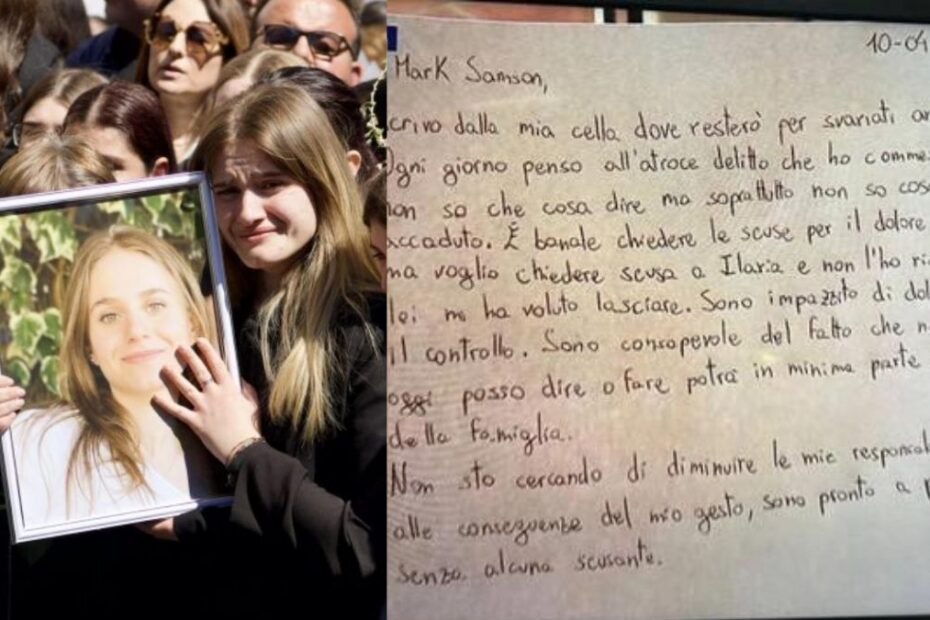 10-04
Mark Samson,
crivo dalla mia cella dove resterò per svariati an
Ogni giorno penso all'atroce delitto che ho comme
non so che cosa dire ma soprattutto non so cos
accaduto. È banale chiedere le scuse per il dolore
ma voglio chiedere scusa a Ilaria e non l'ho ri
lei mi ha voluto lasciare. Sono impazzito di dol
il controllo. Sono consapevole del fatto che n
oggi posso dire o fare potrà in minima parte
della famiglia.
Non sto cercando di diminuire le mie responsa
alle conseguenze del mio gesto, sono pronto a p
senza alcuna scusante.